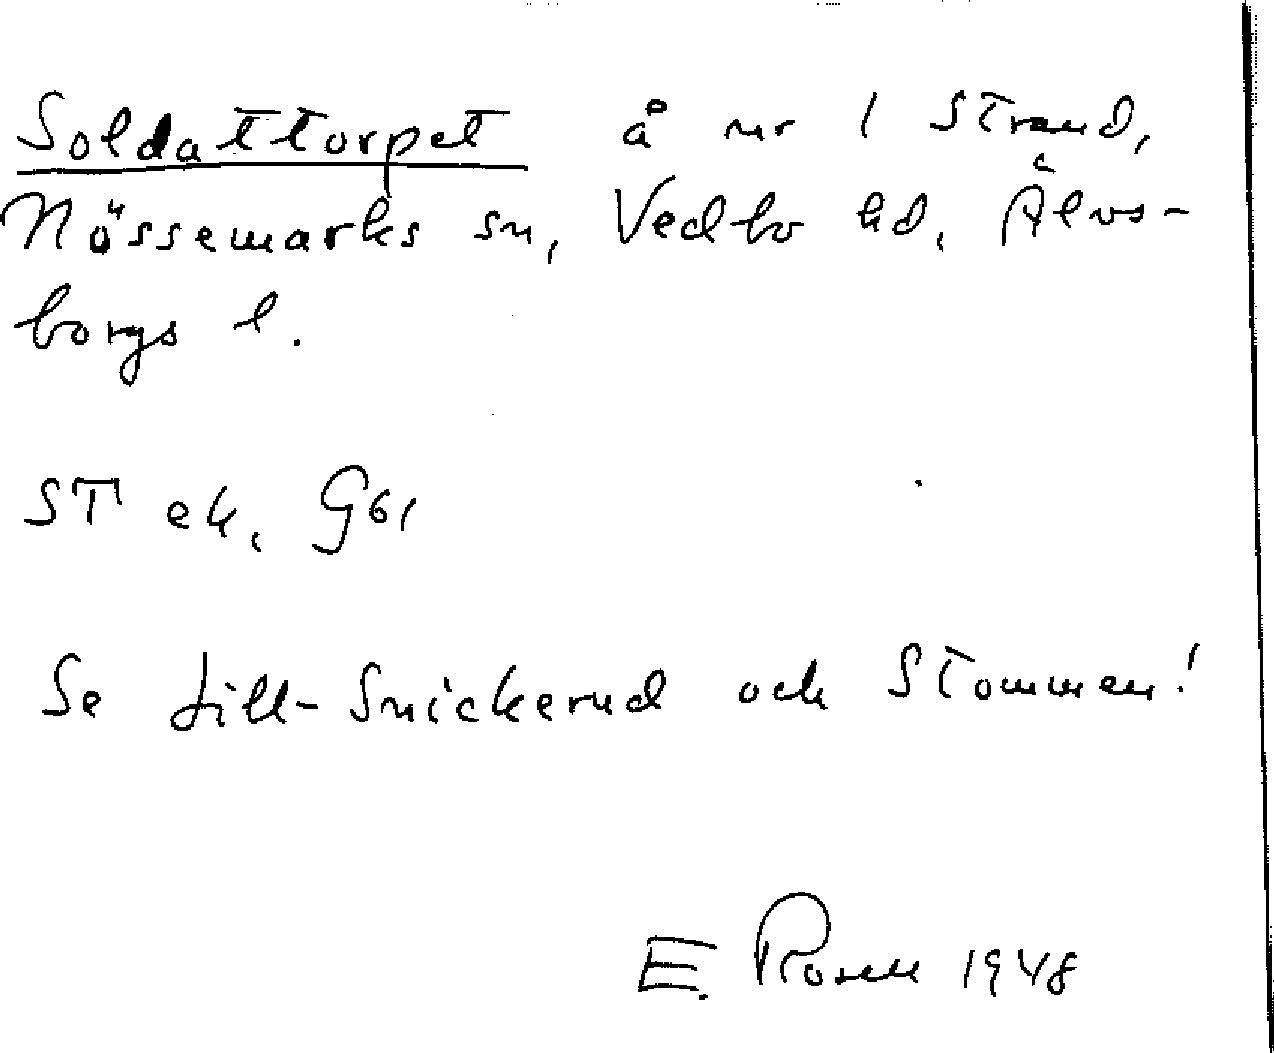 Soldattorpet å nr 1 Strand,
Nössemarks sn, Vedbo hd, Älvs-
borgs l.
ST ek, G61
Se Lill-Snickerud och Stommen!
E. Rosell 1948